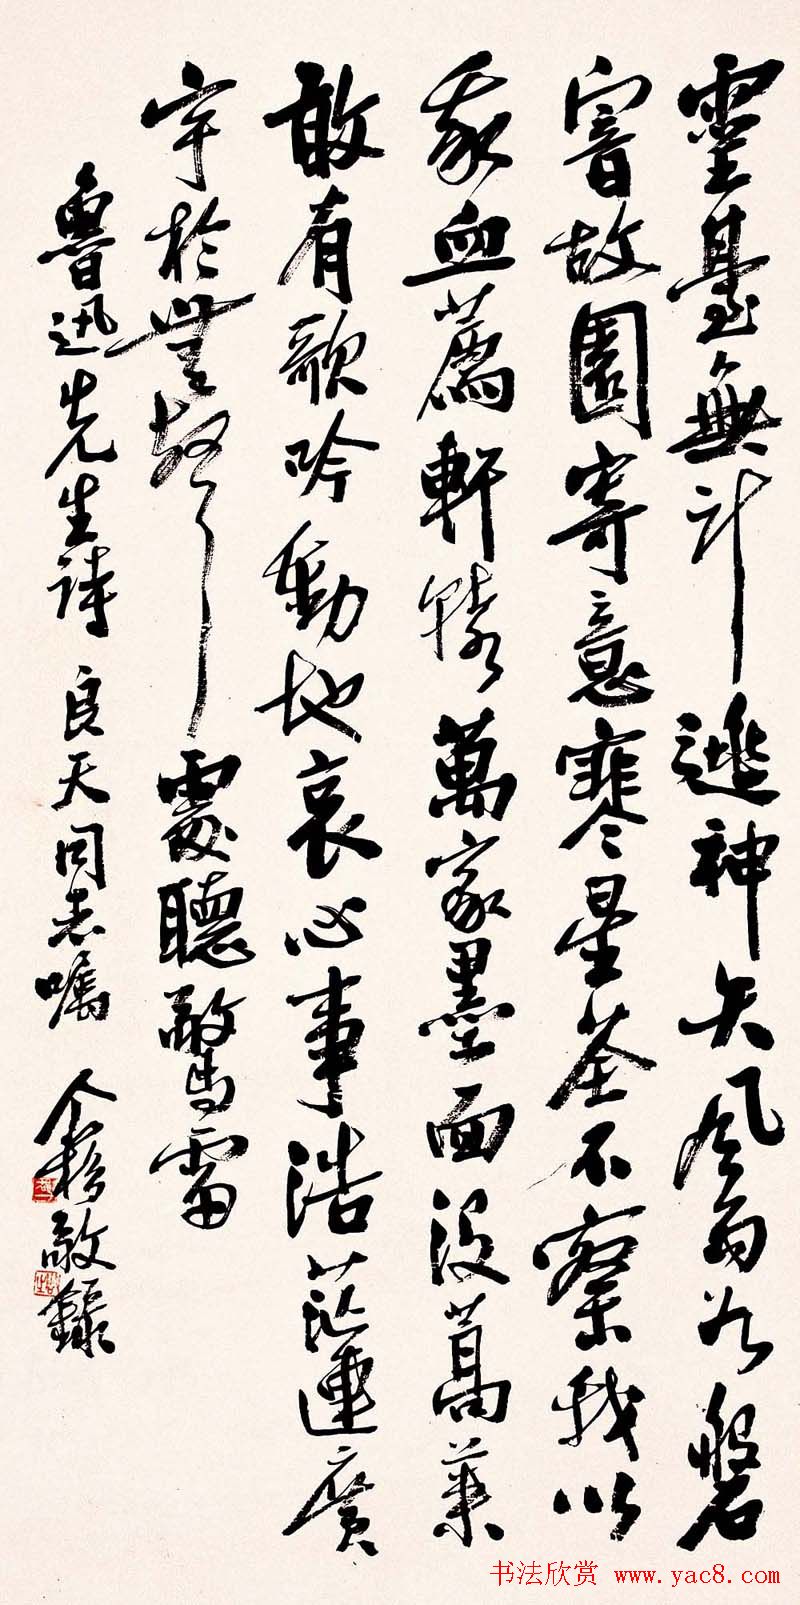 靈臺無計逃神矢風雨如磐
闇故園寄意寒星荃不察我以
我血薦軒轅萬家墨面沒蒿萊
敢有歌吟動地哀心事浩茫連廣
宇於無聲處聽驚雷
魯迅先生詩 良天同志嘱 个簃敬錄
书法欣赏 www.yac8.com